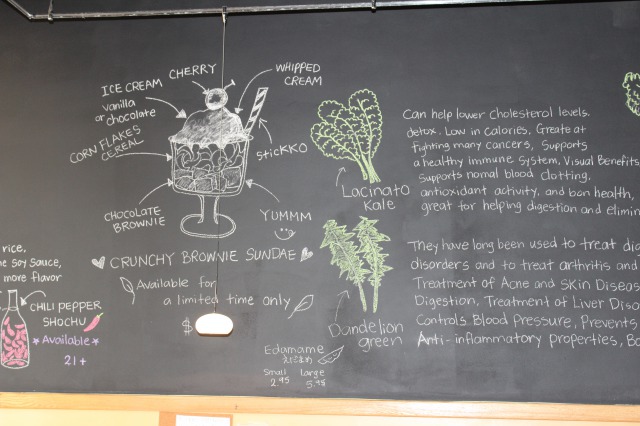 ICE CREAM
vanilla
or chocolate
CHERRY
WHIPPED
CREAM
CORN FLAKES
CEREAL
sticKKO
CHOCOLATE
BROWNIE
YUMMM
CRUNCHY BROWNIE SUNDAE
Available for
a limited time only
$
rice,
soy sauce,
more flavor
CHILI PEPPER
SHOCHU
*Available*
21+
Edamame
えだまめ
Small Large
2.95
Lacinato
Kale
Dandelion
green
Can help lower cholesterol levels.
detox. Low in calories, Great at
fighting many cancers, Supports
a healthy immune system, Visual Benefits,
supports normal blood clotting,
antioxidant activity, and bon health,
great for helping digestion and
They have long been used to treat
disorders and to treat arthritis and
Treatment of Acne and Skin
Digestion, Treatment of Liver
Controls Blood Pressure, Prevents
Anti-inflammatory properties,